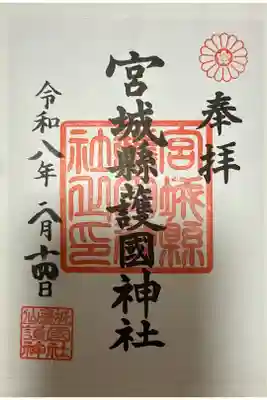 奉拝
宮城縣護國神社
令和八年二月十四日
宮城縣
護國神
社之印